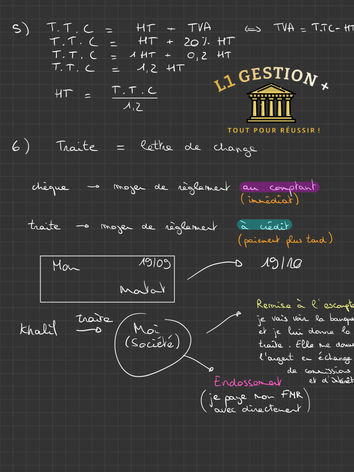 5) T.T.C = HT + TVA ⇔ TVA = T.TC-HT
T.T.C = HT + 20% HT
T.T.C = 1 HT + 0,2 HT
T.T.C = 1,2 HT
HT = T.T.C
1,2
L1 GESTION +
TOUT POUR RÉUSSIR !
6) Traite = lettre de change
chèque → moyen de règlement au comptant
(immédiat)
traite → moyen de règlement à crédit
(paiement plus tard)
19/09
19/10
Khalil traite → Moi
(Société)
Remise à l'escompte
je vais voir la banque
et je lui donne la
traite. Elle me donne
l'argent en échange
de commissions
et d'intérêt
Endossement
(je paye mon FNR
avec directement)